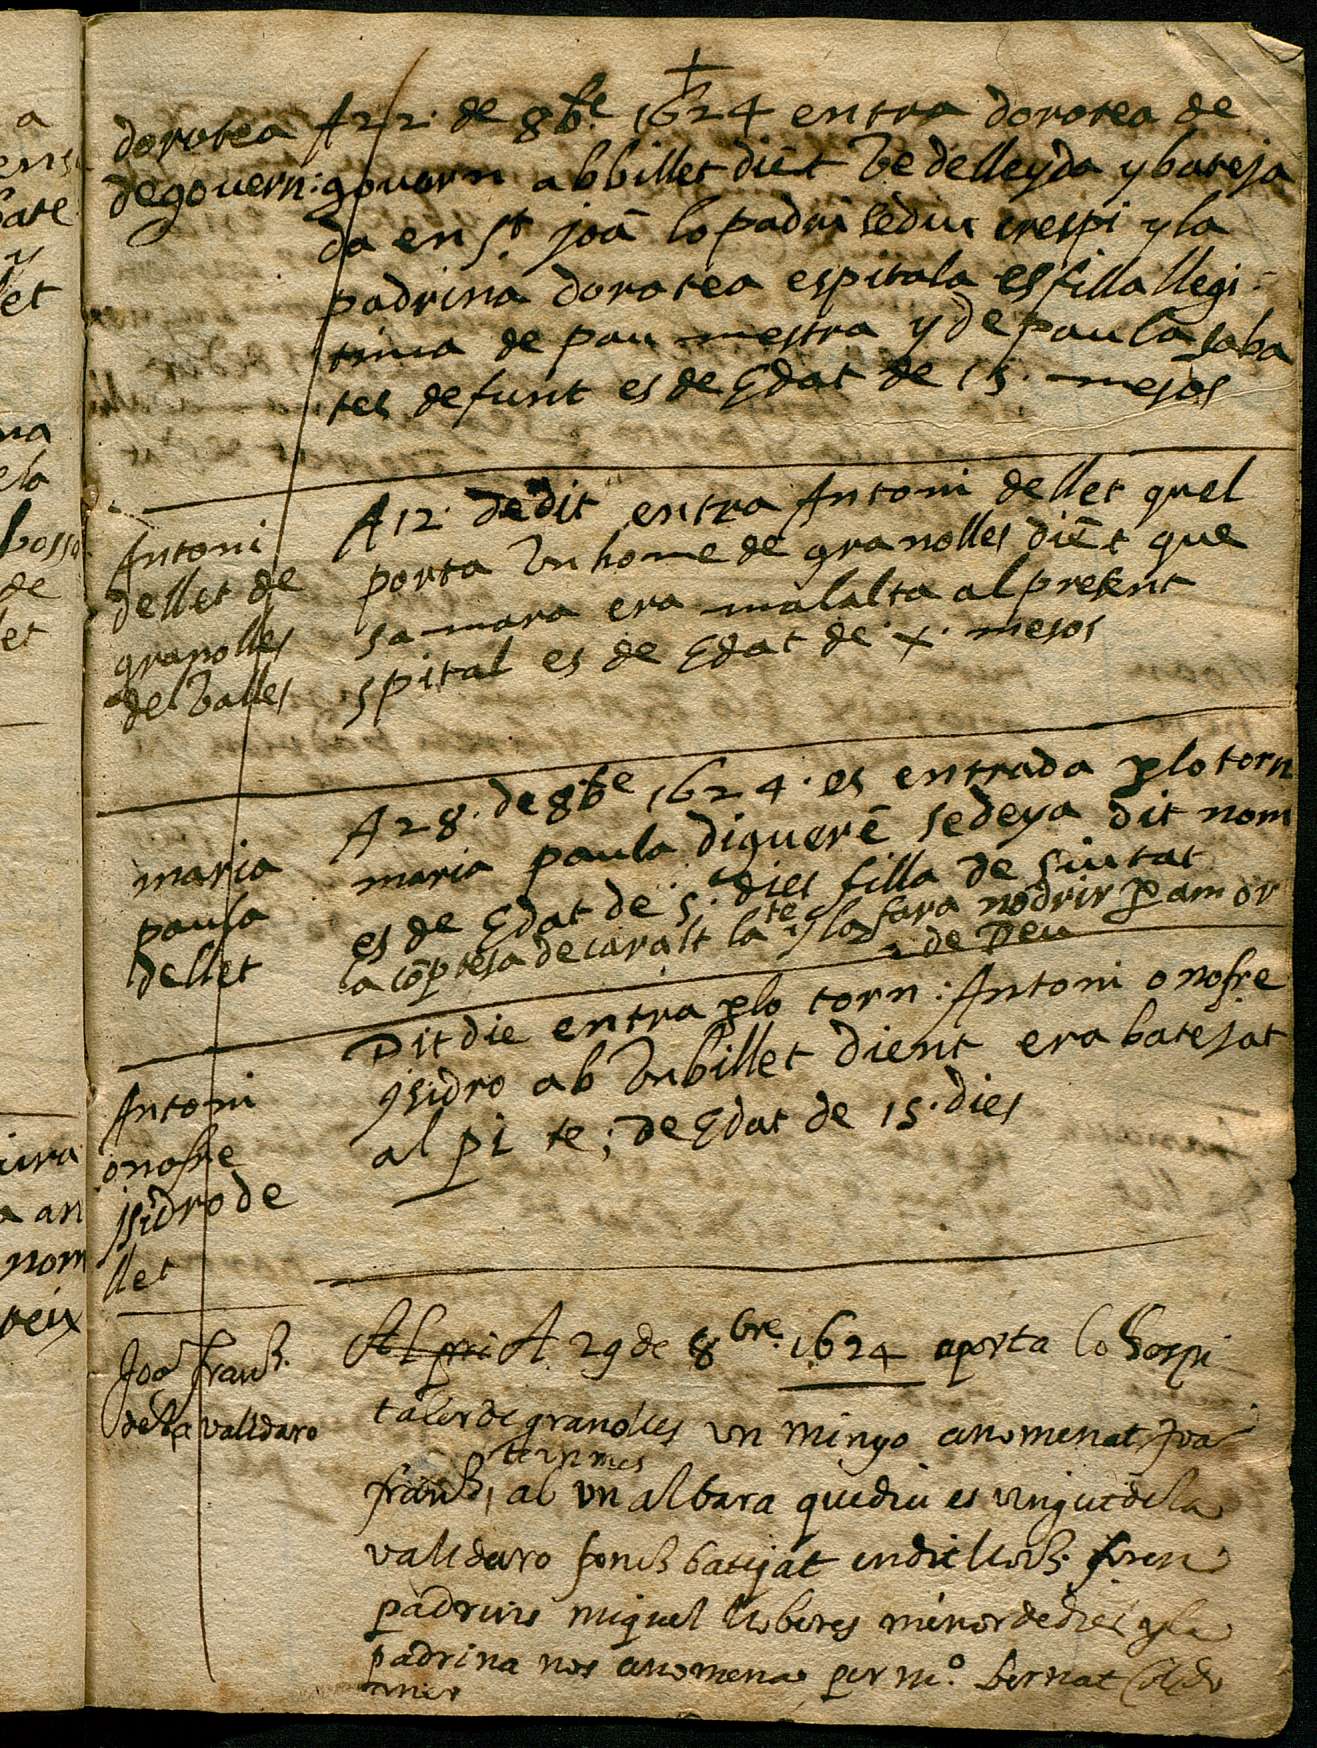 dorotea
de govern:
A 22. de 8bre 1624 entra dorotea de
govern ab billet diēt ve de lleyda y bateja
da en St joā lo padri se diu crespi y la
padrina dorotea espitala es filla llegi-
tima de pau mestra y de paula saba
tes defunt es de Edat de 15. mesos
Antoni
de llet de
granolles
de Valles
A 12. de dit entra Antoni de llet quel
porta Vn home de granolles diēt que
sa mara era malalta al present
spital es de Edat de X. mesos
maria
paula
de llet
A 28. de 8bre 1624. es entrada plo torn
maria paula diguerē se deya dit nom
es de Edat de 5. dies filla de Siutat
la cōptesa de caralt la te y la fara nodrir p amor
de Deu
Antoni
onofre
jsidro de
llet
Dit die entra plo torn: Antoni onofre
ysidro ab Vn billet dient era batejat
al pi te; de Edat de 15. dies
Joā franch.
de la vall daro
Al pri A 29 de 8bre. 1624 aporta lo Hospi
taler de granolles vn minyo anomenat Joā
franch, te un mes
ab vn albara que diu es vingut de la
vall daro fonch batejat en dit lloch. foren
padrins miquel lloberes menor de dies y la
padrina nos anomena per mº. bernat